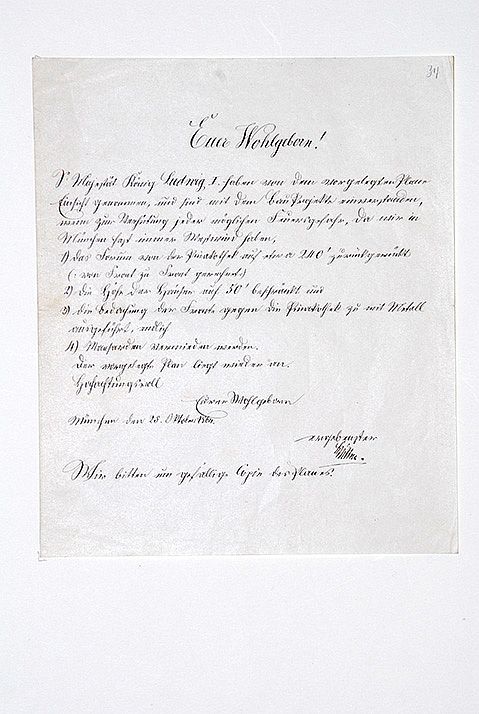 34
Euer Wohlgeborn!
Sr Majestät König Ludwig I. haben von dem vorgelegten Plane
Einsicht genommen, und sind mit dem Bauprojekte einverstanden,
wenn zur Verhütung jeder möglichen Feuersgefahr, da wir in
München fast immer Westwind haben,
1) das Forum von der Pinakothek auf etwa 240' zurückgerückt
(: von Front zu Front gerechnet:)
2) die Höhe der Häuser auf 50' beschränkt und
3) die Bedachung der Fronte gegen die Pinakothek zu mit Metall
ausgeführt, endlich
4) Mansarden vermieden werden.
Der vorgelegte Plan liegt wieder an.
Hochachtungsvoll
Euerer Wohlgeborn
München den 28. Oktober
ergebenster
Wir bitten um gefällige Copie des Planes.